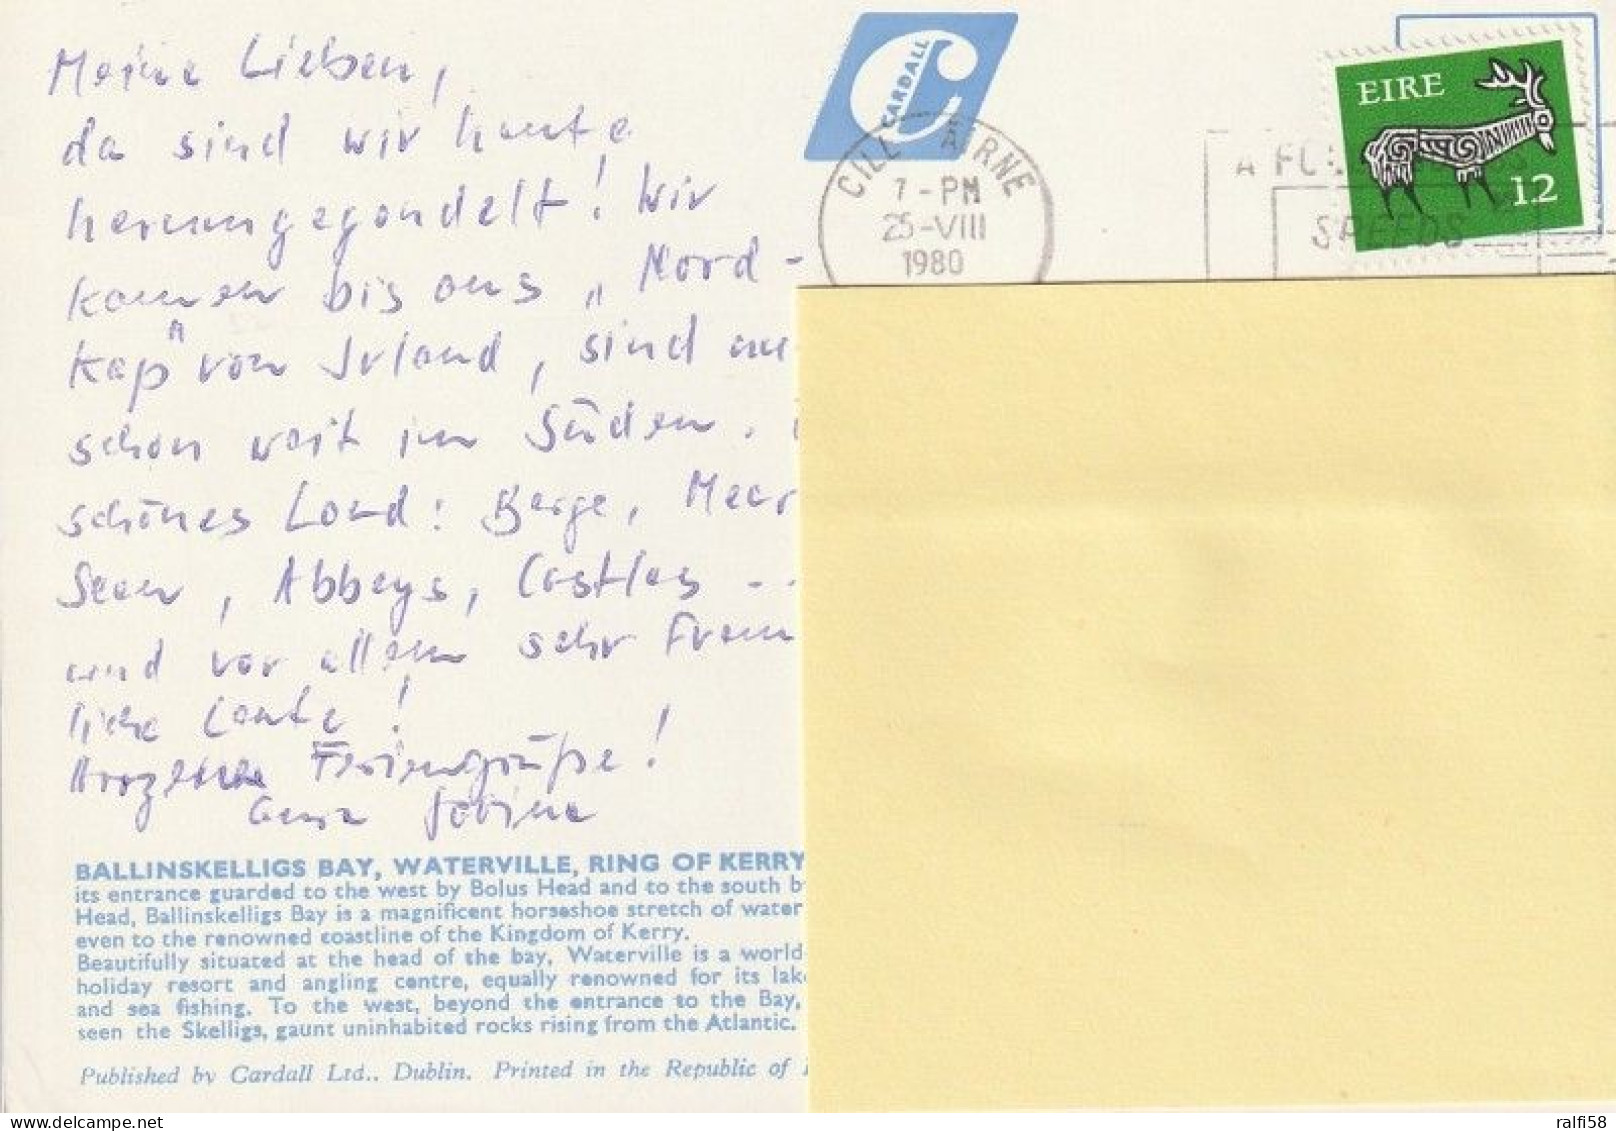 Meine Lieben,
da sind wir heute
herumgegondelt! Wir
kamen bis ans „Nord-
kap" von Irland, sind
schon weit im Süden.
schönes Land: Berge, Meer
Seen, Abbeys, Castles --
und vor allem sehr freun
liche Leute!
Feriengrüße!
CARDALL
CILL AIRNE
7-PM
25-VIII
1980
EIRE
12
SPEEDS
BALLINSKELLIGS BAY, WATERVILLE, RING OF KERRY
its entrance guarded to the west by Bolus Head and to the south b
Head, Ballinskelligs Bay is a magnificent horseshoe stretch of water
even to the renowned coastline of the Kingdom of Kerry.
Beautifully situated at the head of the bay, Waterville is a world-
holiday resort and angling centre, equally renowned for its lak
and sea fishing. To the west, beyond the entrance to the Bay,
seen the Skelligs, gaunt uninhabited rocks rising from the Atlantic.
Published by Cardall Ltd., Dublin. Printed in the Republic of
ralfi58